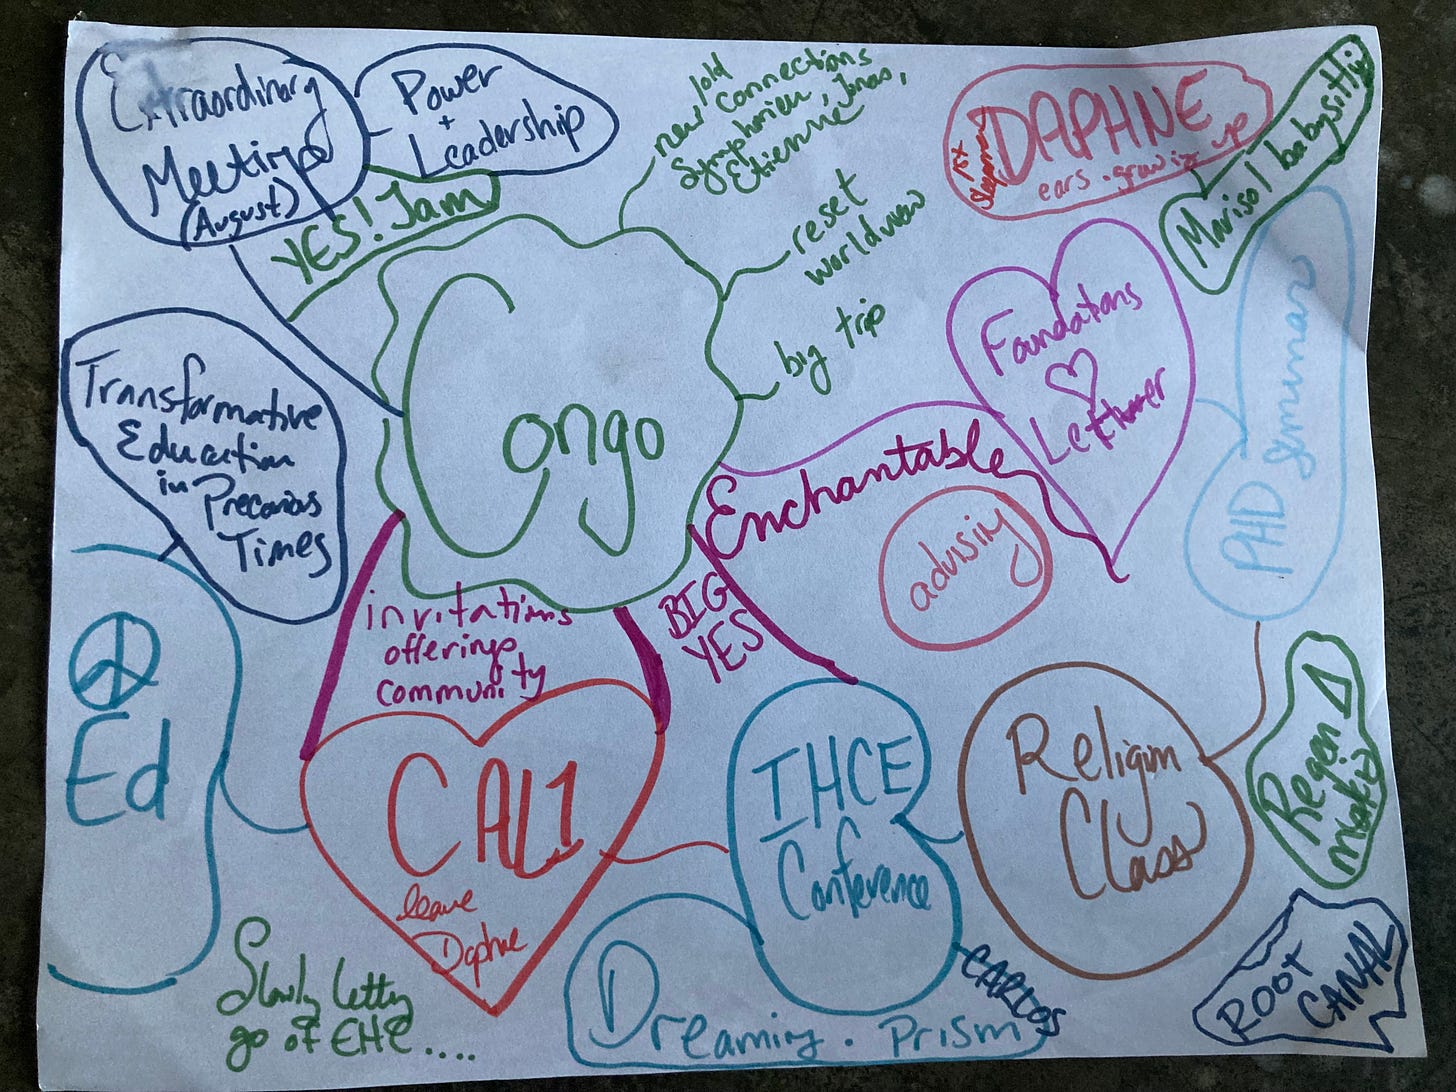 Extraordinary
Meetings
(August)
Power
+
Leadership
YES! Jam
new/old
connections
Symphorien, Jonas,
Etienne
reset
worldview
big trip
DAPHNE
ears. growing up
Marisol babysitting
Transformative
Education
in Precarious
Times
Congo
Foundations
Enchantable
advising
PHD Seminar
invitations
offerings
community
BIG
YES
Ed
CALI
leave
Daphne
THCE
Conference
Religion
Class
Regen
ROOT
CANAL
Slowly letting
go of EHE....
Dreaming. Prism
CARLOS